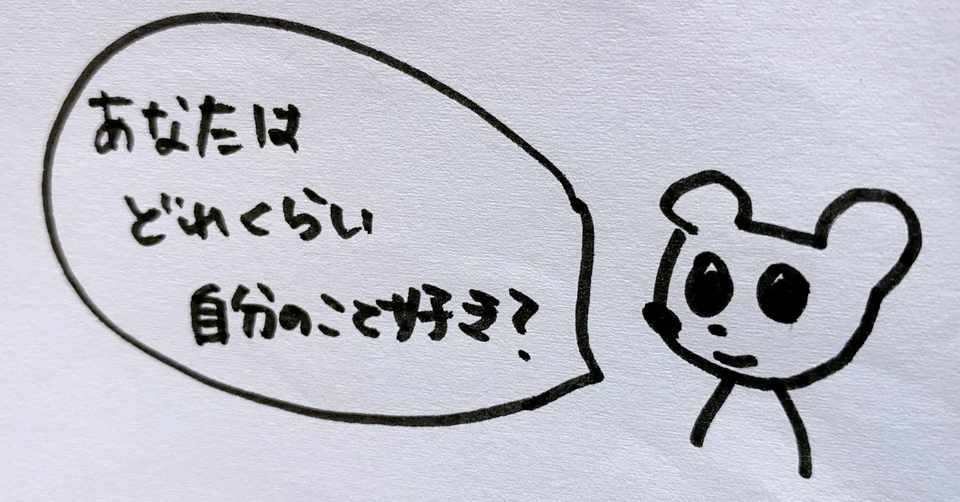 あなたは
どれくらい
自分のこと好き?